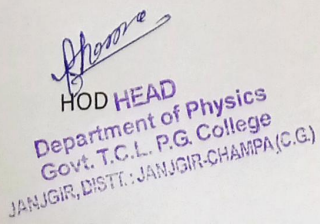 HOD HEAD
Department of Physics
Govt. T.C.L. P.G. College
JANJGIR, DISTT.: JANJGIR-CHAMPA (C.G.)